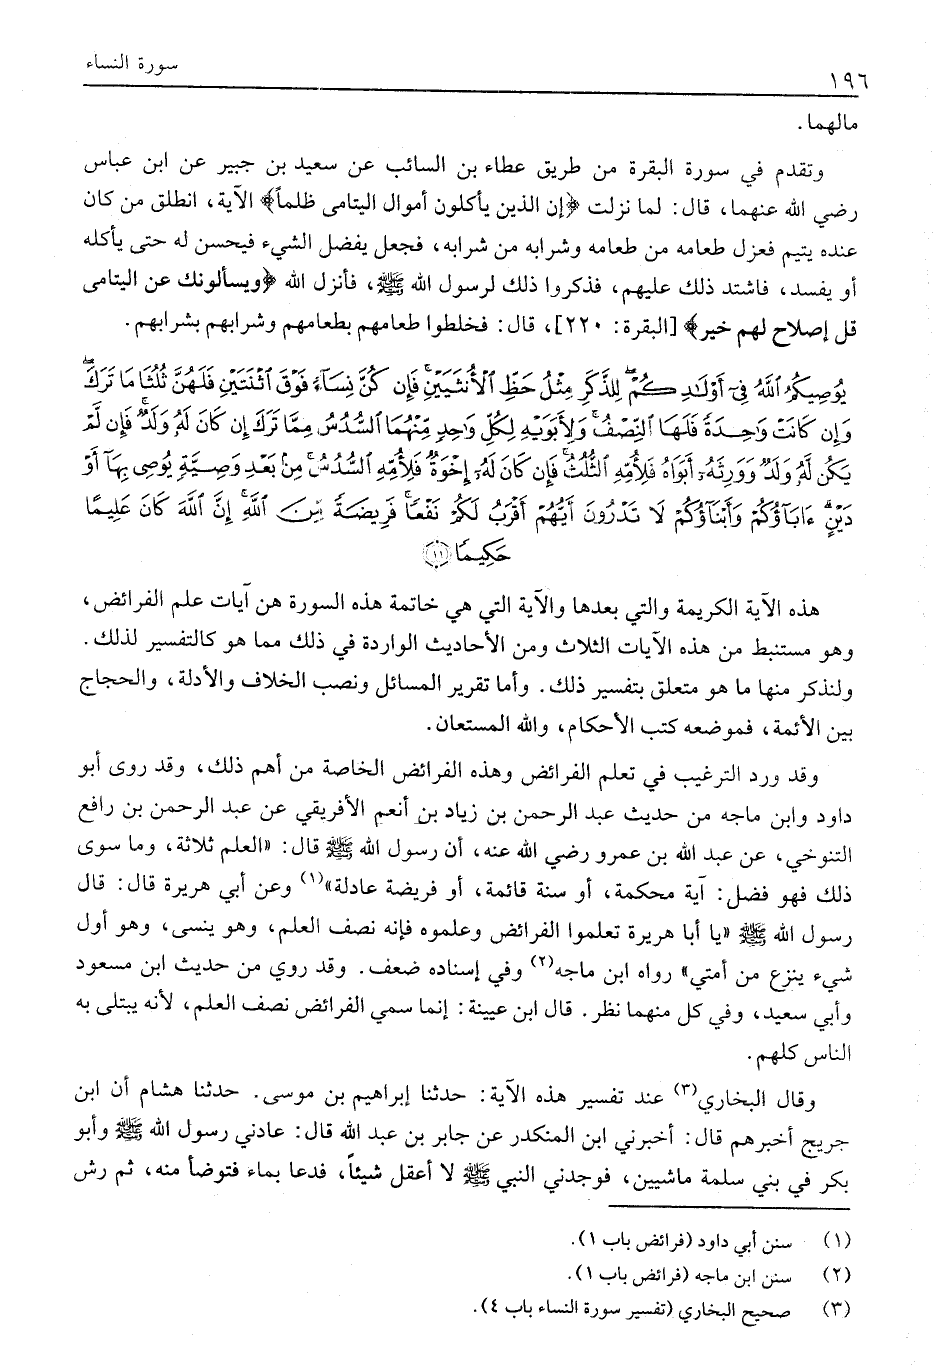 سورة النساء
١٩٦
مالهما.
وتقدم في سورة البقرة من طريق عطاء بن السائب عن سعيد بن جبير عن ابن عباس
رضي الله عنهما، قال: لما نزلت ﴿إن الذين يأكلون أموال اليتامى ظلماً﴾ الآية، انطلق من كان
عنده يتيم فعزل طعامه من طعامه وشرابه من شرابه، فجعل يفضل الشيء فيحسن له حتى يأكله
أو يفسد، فاشتد ذلك عليهم، فذكروا ذلك لرسول الله ﷺ، فأنزل الله ﴿ويسألونك عن اليتامى
قل إصلاح لهم خير﴾ [البقرة: ٢٢٠]، قال: فخلطوا طعامهم بطعامهم وشرابهم بشرابهم.
يُوصِيكُمُ ٱللَّهُ فِىٓ أَوْلَـٰدِكُمْ ۖ لِلذَّكَرِ مِثْلُ حَظِّ ٱلْأُنثَيَيْنِ ۚ فَإِن كُنَّ نِسَآءً فَوْقَ ٱثْنَتَيْنِ فَلَهُنَّ ثُلُثَا مَا تَرَكَ ۖ
وَإِن كَانَتْ وَٰحِدَةً فَلَهَا ٱلنِّصْفُ ۚ وَلِأَبَوَيْهِ لِكُلِّ وَٰحِدٍ مِّنْهُمَا ٱلسُّدُسُ مِمَّا تَرَكَ إِن كَانَ لَهُۥ وَلَدٌ ۚ فَإِن لَّمْ
يَكُن لَّهُۥ وَلَدٌ وَوَرِثَهُۥٓ أَبَوَاهُ فَلِأُمِّهِ ٱلثُّلُثُ ۚ فَإِن كَانَ لَهُۥٓ إِخْوَةٌ فَلِأُمِّهِ ٱلسُّدُسُ ۚ مِنۢ بَعْدِ وَصِيَّةٍ يُوصِى بِهَآ أَوْ
دَيْنٍ ۗ ءَابَآؤُكُمْ وَأَبْنَآؤُكُمْ لَا تَدْرُونَ أَيُّهُمْ أَقْرَبُ لَكُمْ نَفْعًا ۚ فَرِيضَةً مِّنَ ٱللَّهِ ۗ إِنَّ ٱللَّهَ كَانَ عَلِيمًا
حَكِيمًا ﴿١١﴾
هذه الآية الكريمة والتي بعدها والآية التي هي خاتمة هذه السورة هن آيات علم الفرائض،
وهو مستنبط من هذه الآيات الثلاث ومن الأحاديث الواردة في ذلك مما هو كالتفسير لذلك.
ولنذكر منها ما هو متعلق بتفسير ذلك. وأما تقرير المسائل ونصب الخلاف والأدلة، والحجاج
بين الأئمة، فموضعه كتب الأحكام، والله المستعان.
وقد ورد الترغيب في تعلم الفرائض وهذه الفرائض الخاصة من أهم ذلك، وقد روى أبو
داود وابن ماجه من حديث عبد الرحمن بن زياد بن أنعم الأفريقي عن عبد الرحمن بن رافع
التنوخي، عن عبد الله بن عمرو رضي الله عنه، أن رسول الله ﷺ قال: «العلم ثلاثة، وما سوى
ذلك فهو فضل: آية محكمة، أو سنة قائمة، أو فريضة عادلة»(١) وعن أبي هريرة قال: قال
رسول الله ﷺ «يا أبا هريرة تعلموا الفرائض وعلموه فإنه نصف العلم، وهو ينسى، وهو أول
شيء ينزع من أمتي» رواه ابن ماجه(٢) وفي إسناده ضعف. وقد روي من حديث ابن مسعود
وأبي سعيد، وفي كل منهما نظر. قال ابن عيينة: إنما سمي الفرائض نصف العلم، لأنه يبتلى به
الناس كلهم.
وقال البخاري(٣) عند تفسير هذه الآية: حدثنا إبراهيم بن موسى. حدثنا هشام أن ابن
جريج أخبرهم قال: أخبرني ابن المنكدر عن جابر بن عبد الله قال: عادني رسول الله ﷺ وأبو
بكر في بني سلمة ماشيين، فوجدني النبي ﷺ لا أعقل شيئاً، فدعا بماء فتوضأ منه، ثم رش
(١) سنن أبي داود (فرائض باب ١).
(٢) سنن ابن ماجه (فرائض باب ١).
(٣) صحيح البخاري (تفسير سورة النساء باب ٤).